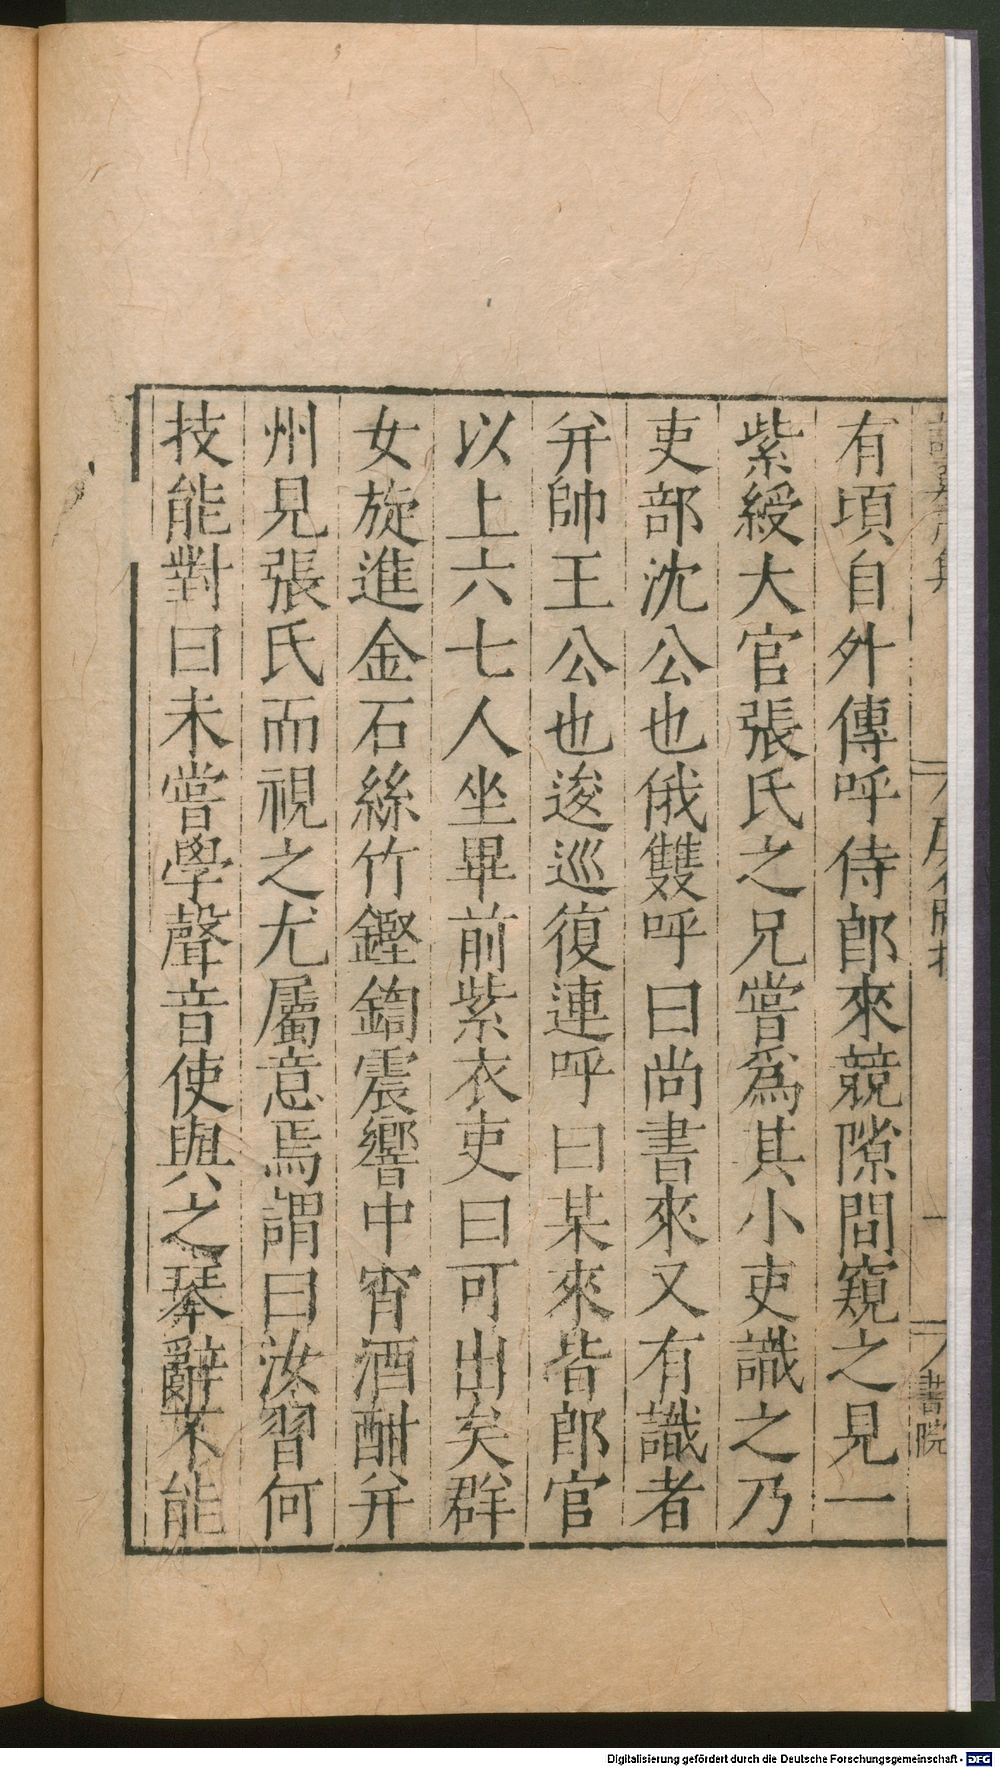 有頃自外傳呼侍郎來競隙間窺之見一
紫綬大官張氏之兄嘗爲其小吏識之乃
吏部沈公也俄雙呼曰尚書來又有識者
并帥王公也逡巡復連呼曰某來皆郎官
以上六七人坐畢前紫衣吏曰可出矣群
女旋進金石絲竹鏗鍧震響中宵酒酣并
州見張氏而視之尤屬意焉謂曰汝習何
技能對曰未嘗學聲音使與之琴辭不能
書院
Digitalisierung gefördert durch die Deutsche Forschungsgemeinschaft - DFG